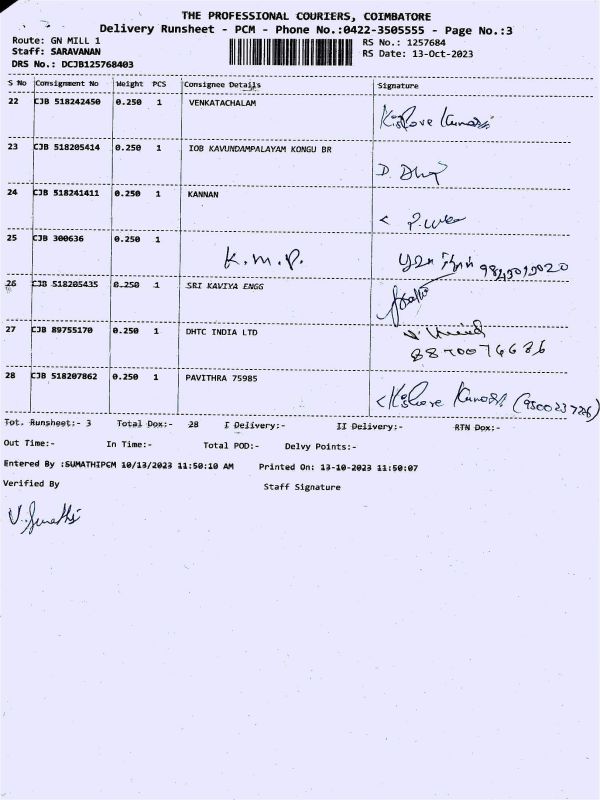 THE PROFESSIONAL COURIERS, COIMBATORE
Delivery Runsheet - PCM - Phone No.:0422-3505555 - Page No.:3
Route: GN MILL 1 RS No.: 1257684
Staff: SARAVANAN RS Date: 13-Oct-2023
DRS No.: DCJB125768403
S No Consignment No Weight PCS Consignee Details Signature
22 CJB 518242450 0.250 1 VENKATACHALAM Kishore Kumar
23 CJB 518205414 0.250 1 IOB KAVUNDAMPALAYAM KONGU BR D.
24 CJB 518241411 0.250 1 KANNAN
25 CJB 300636 0.250 1 K.M.P.
26 CJB 518205435 0.250 1 SRI KAVIYA ENGG
27 CJB 89755170 0.250 1 DHTC INDIA LTD
8870076686
28 CJB 518207862 0.250 1 PAVITHRA 75985 Kishore Kumar
Tot. Runsheet:- 3 Total Dox:- 28 I Delivery:- II Delivery:- RTN Dox:-
Out Time:- In Time:- Total POD:- Delvy Points:-
Entered By :SUMATHIPCM 10/13/2023 11:50:10 AM Printed On: 13-10-2023 11:50:07
Verified By Staff Signature
V. Sumathi